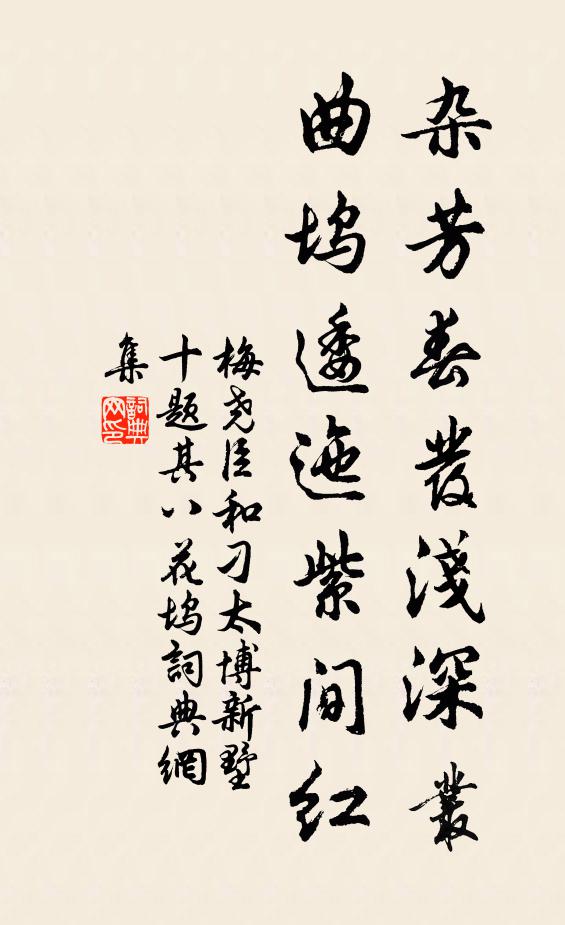 杂芳春發淺深叢
曲坞逶迤紫间红
梅尧臣和刁太博新墅
十题其八花坞詞典網
集
詞典
网印